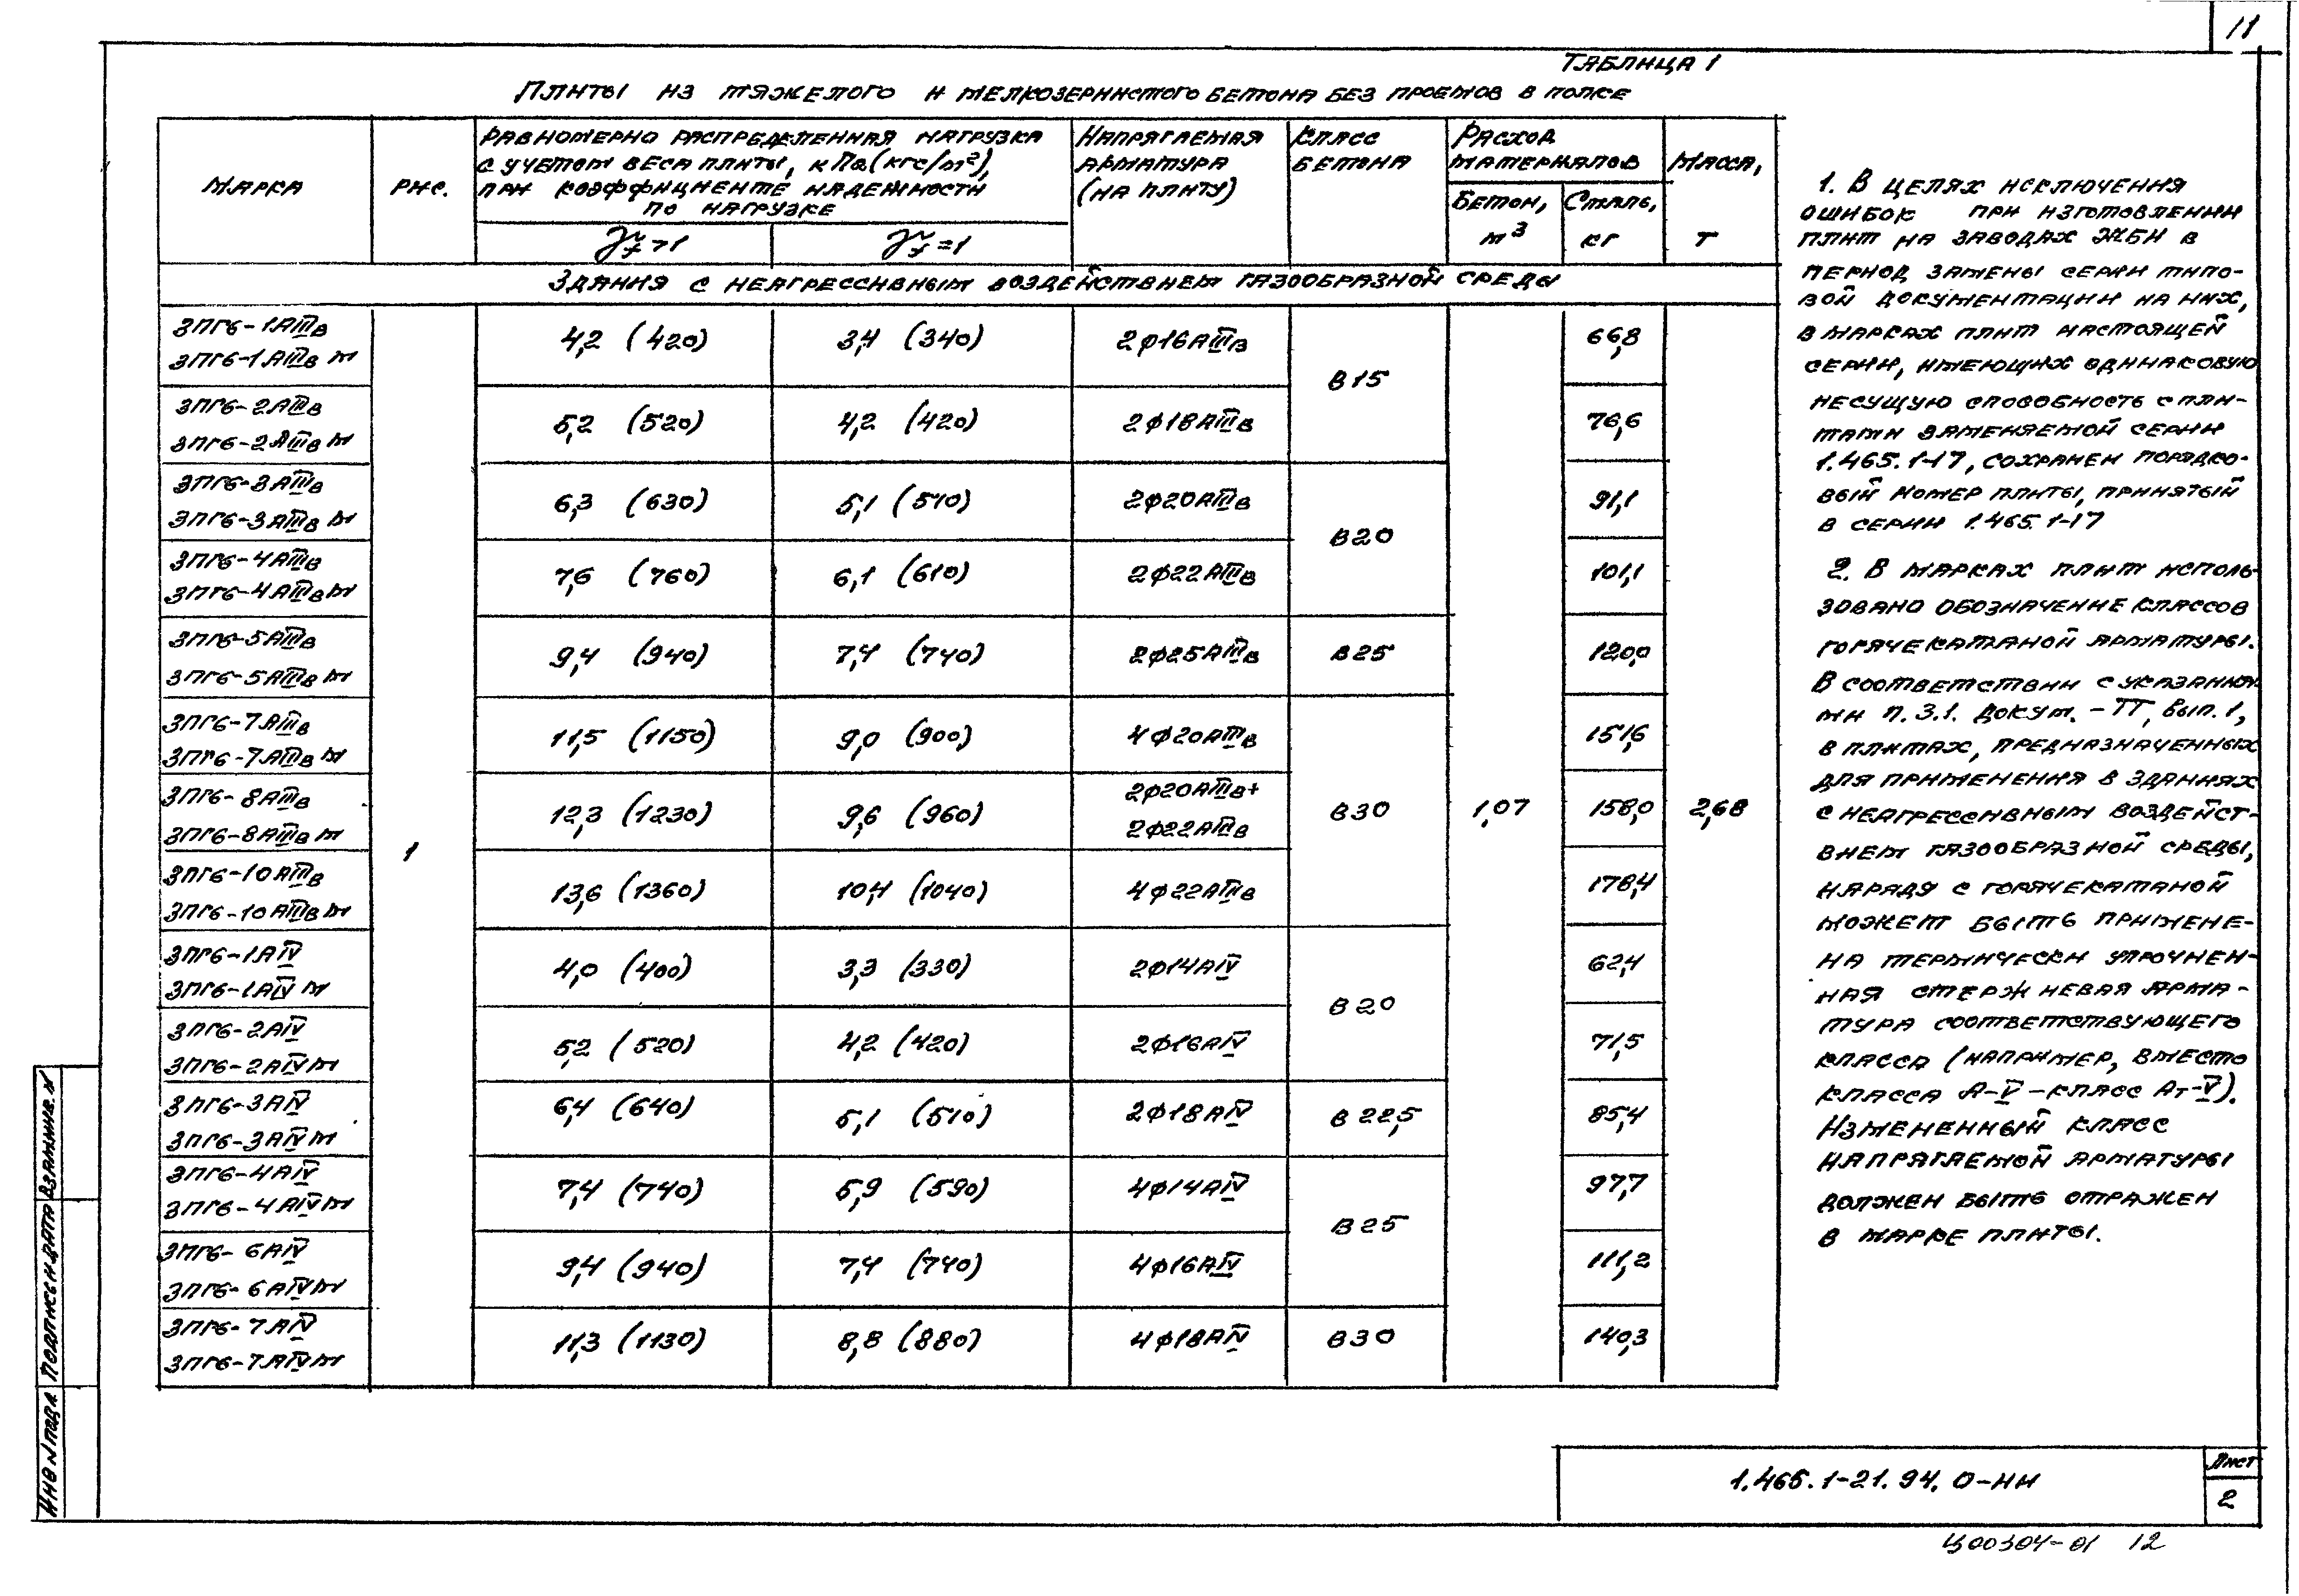 11
Таблица 1
Плиты из тяжелого и мелкозернистого бетона без проемов в полке
Марка
Рис.
Равномерно распределенная нагрузка
с учетом веса плиты, кПа (кгс/м²),
при коэффициенте надежности
по нагрузке
γf >1
γf =1
Напрягаемая
арматура
(на плиту)
Класс
бетона
Расход
материалов
Бетон,
м³
Сталь,
кг
Масса,
т
Здания с неагрессивным воздействием газообразной среды
3ПГ6-1АIIIв
3ПГ6-1АIIIв м
4,2 (420)
3,4 (340)
2φ16АIIIв
В15
66,8
3ПГ6-2АIIIв
3ПГ6-2АIIIв м
5,2 (520)
4,2 (420)
2φ18АIIIв
76,6
3ПГ6-3АIIIв
3ПГ6-3АIIIв м
6,3 (630)
5,1 (510)
2φ20АIIIв
В20
91,1
3ПГ6-4АIIIв
3ПГ6-4АIIIв м
7,6 (760)
6,1 (610)
2φ22АIIIв
101,1
3ПГ6-5АIIIв
3ПГ6-5АIIIв м
9,4 (940)
7,4 (740)
2φ25АIIIв
В25
120,0
3ПГ6-7АIIIв
3ПГ6-7АIIIв м
11,5 (1150)
9,0 (900)
4φ20АIIIв
151,6
3ПГ6-8АIIIв
3ПГ6-8АIIIв м
1
12,3 (1230)
9,6 (960)
2φ20АIIIв+
2φ22АIIIв
В30
1,07
158,0
2,68
3ПГ6-10АIIIв
3ПГ6-10АIIIв м
13,6 (1360)
10,4 (1040)
4φ22АIIIв
178,4
3ПГ6-1АIV
3ПГ6-1АIV м
4,0 (400)
3,3 (330)
2φ14АIV
В20
62,4
3ПГ6-2АIV
3ПГ6-2АIV м
5,2 (520)
4,2 (420)
2φ16АIV
71,5
3ПГ6-3АIV
3ПГ6-3АIV м
6,4 (640)
5,1 (510)
2φ18АIV
В22,5
85,4
3ПГ6-4АIV
3ПГ6-4АIV м
7,4 (740)
5,9 (590)
4φ14АIV
В25
97,7
3ПГ6-6АIV
3ПГ6-6АIV м
9,4 (940)
7,4 (740)
4φ16АIV
111,2
3ПГ6-7АIV
3ПГ6-7АIV м
11,3 (1130)
8,8 (880)
4φ18АIV
В30
140,3
1. В целях исключения
ошибок при изготовлении
плит на заводах ЖБИ в
период замены серии типо-
вой документации на них,
в марках плит настоящей
серии, имеющих одинаковую
несущую способность с пли-
тами заменяемой серии
1.465.1-17, сохранен порядко-
вый номер плиты, принятый
в серии 1.465.1-17
2. В марках плит исполь-
зовано обозначение классов
горячекатаной арматуры.
В соответствии с указания-
ми п. 3.1. докум. -ТТ, вып. 1,
в плитах, предназначенных
для применения в зданиях
с неагрессивным воздейст-
вием газообразной среды,
наряду с горячекатаной
может быть примене-
на термически упрочнен-
ная стержневая арма-
тура соответствующего
класса (например, вместо
класса А-V – класс Ат-V).
Измененный класс
напрягаемой арматуры
должен быть отражен
в марке плиты.
Инв N подл
Подпись и дата
Взам инв. N
1.465.1-21.94.0-НИ
Лист
2
Ц00304-01 12